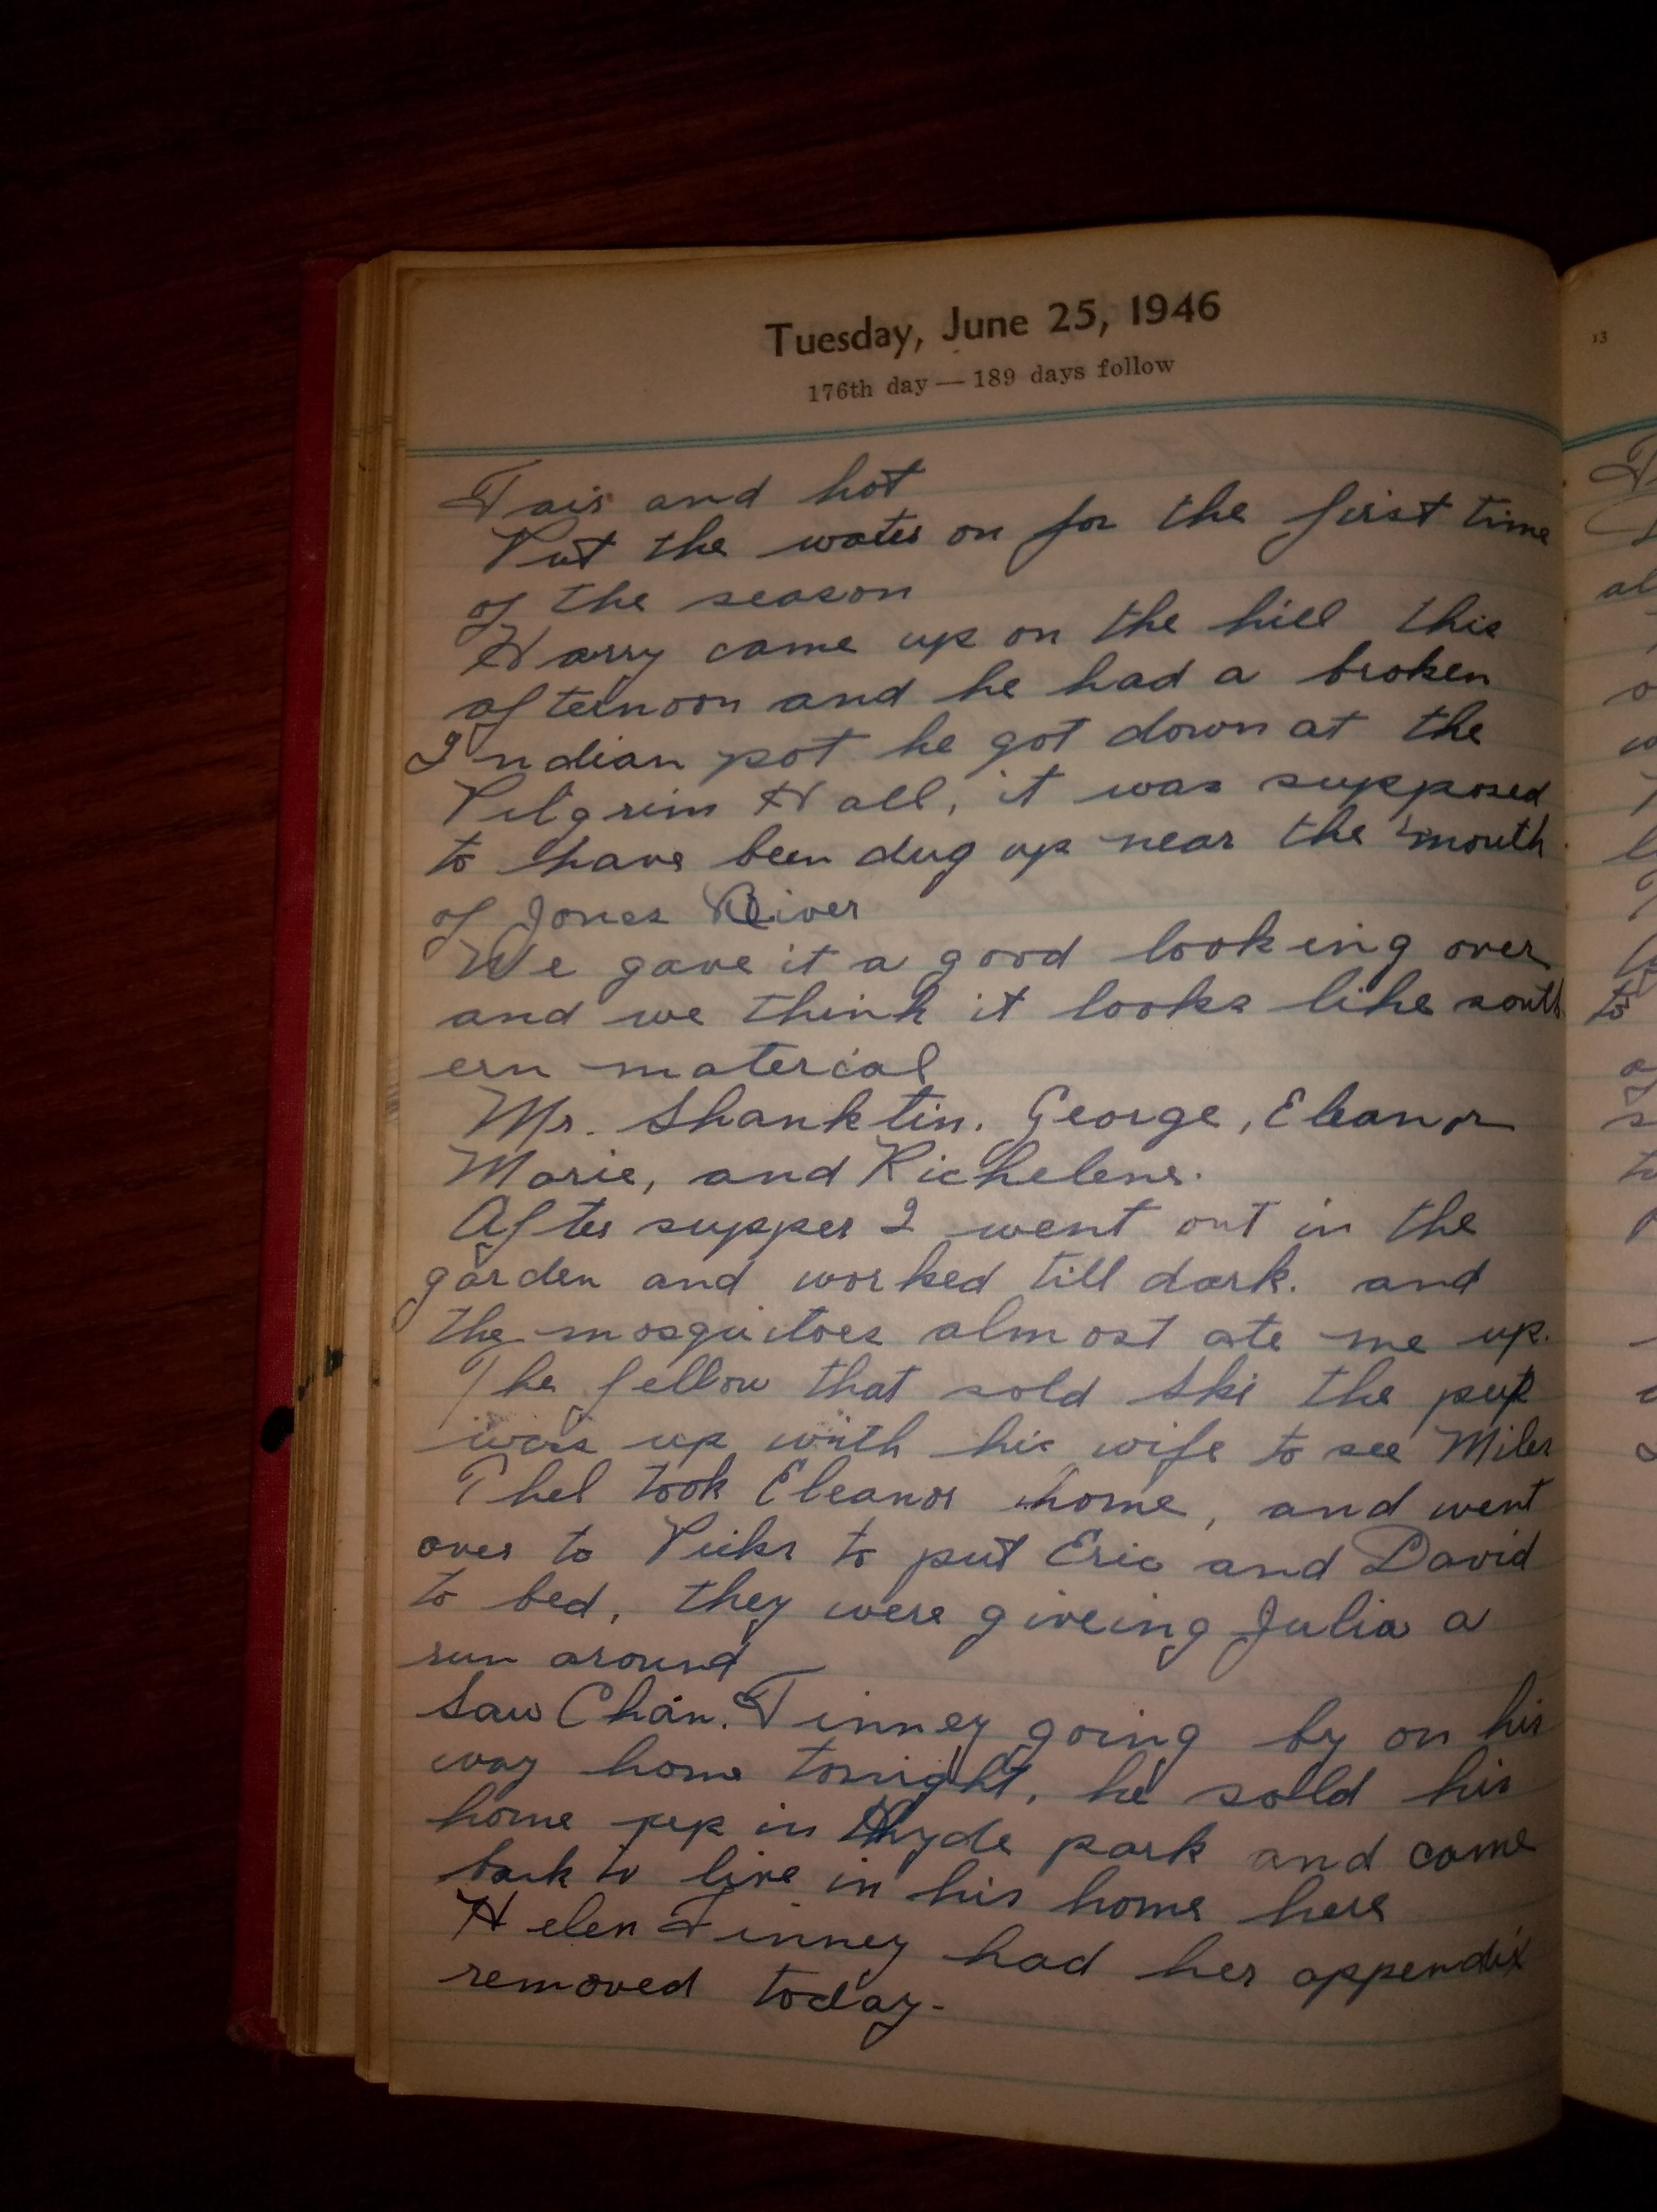 Tuesday, June 25, 1946
176th day — 189 days follow
Fair and hot
Put the water on for the first time
of the season
Harry came up on the hill this
afternoon and he had a broken
Indian pot he got down at the
Pilgrim Hall, it was supposed
to have been dug up near the mouth
of Jones River
We gave it a good looking over
and we think it looks like south
ern material
Mr. Shanktin. George, Eleanor
Marie, and Richelene.
After supper I went out in the
garden and worked till dark. and
the mosquitoes almost ate me up.
The fellow that sold Ski the pup
was up with his wife to see Miles
Phel took Eleanor home, and went
over to Picks to put Eric and David
to bed, they were giveing Julia a
run around
Saw Chan. Finney going by on his
way home tonight, he sold his
home up in Hyde park and come
back to live in his home here
Helen Finney had her appendix
removed today.
13